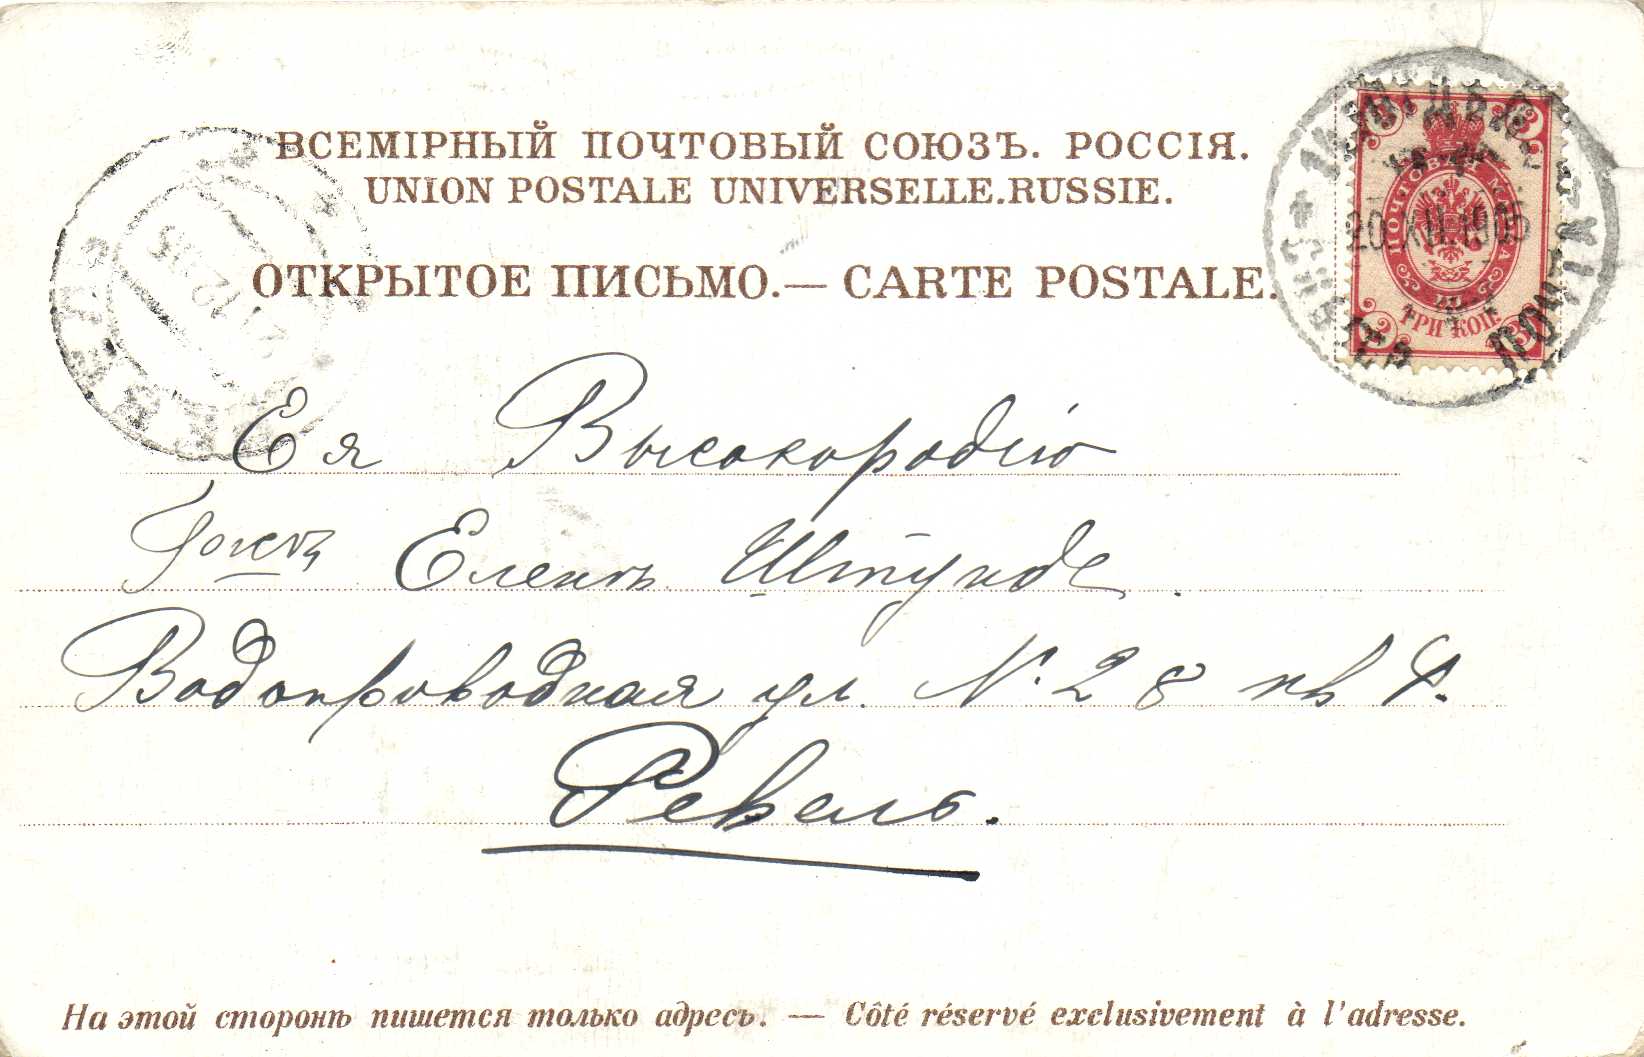 ВСЕМІРНЫЙ ПОЧТОВЫЙ СОЮЗЪ. РОССІЯ.
UNION POSTALE UNIVERSELLE.RUSSIE.
ОТКРЫТОЕ ПИСЬМО.— CARTE POSTALE.
20.XII.1905
ПОЧТОВАЯ МАРКА
3
3
3
3
ТРИ КОП.
21.12.05
РЕВЕЛЬ
Ея Высокородію
Еленѣ Штунде.
Водопроводная ул. №. 28 кв
Ревель.
На этой сторонѣ пишется только адресъ. — Côté réservé exclusivement à l'adresse.